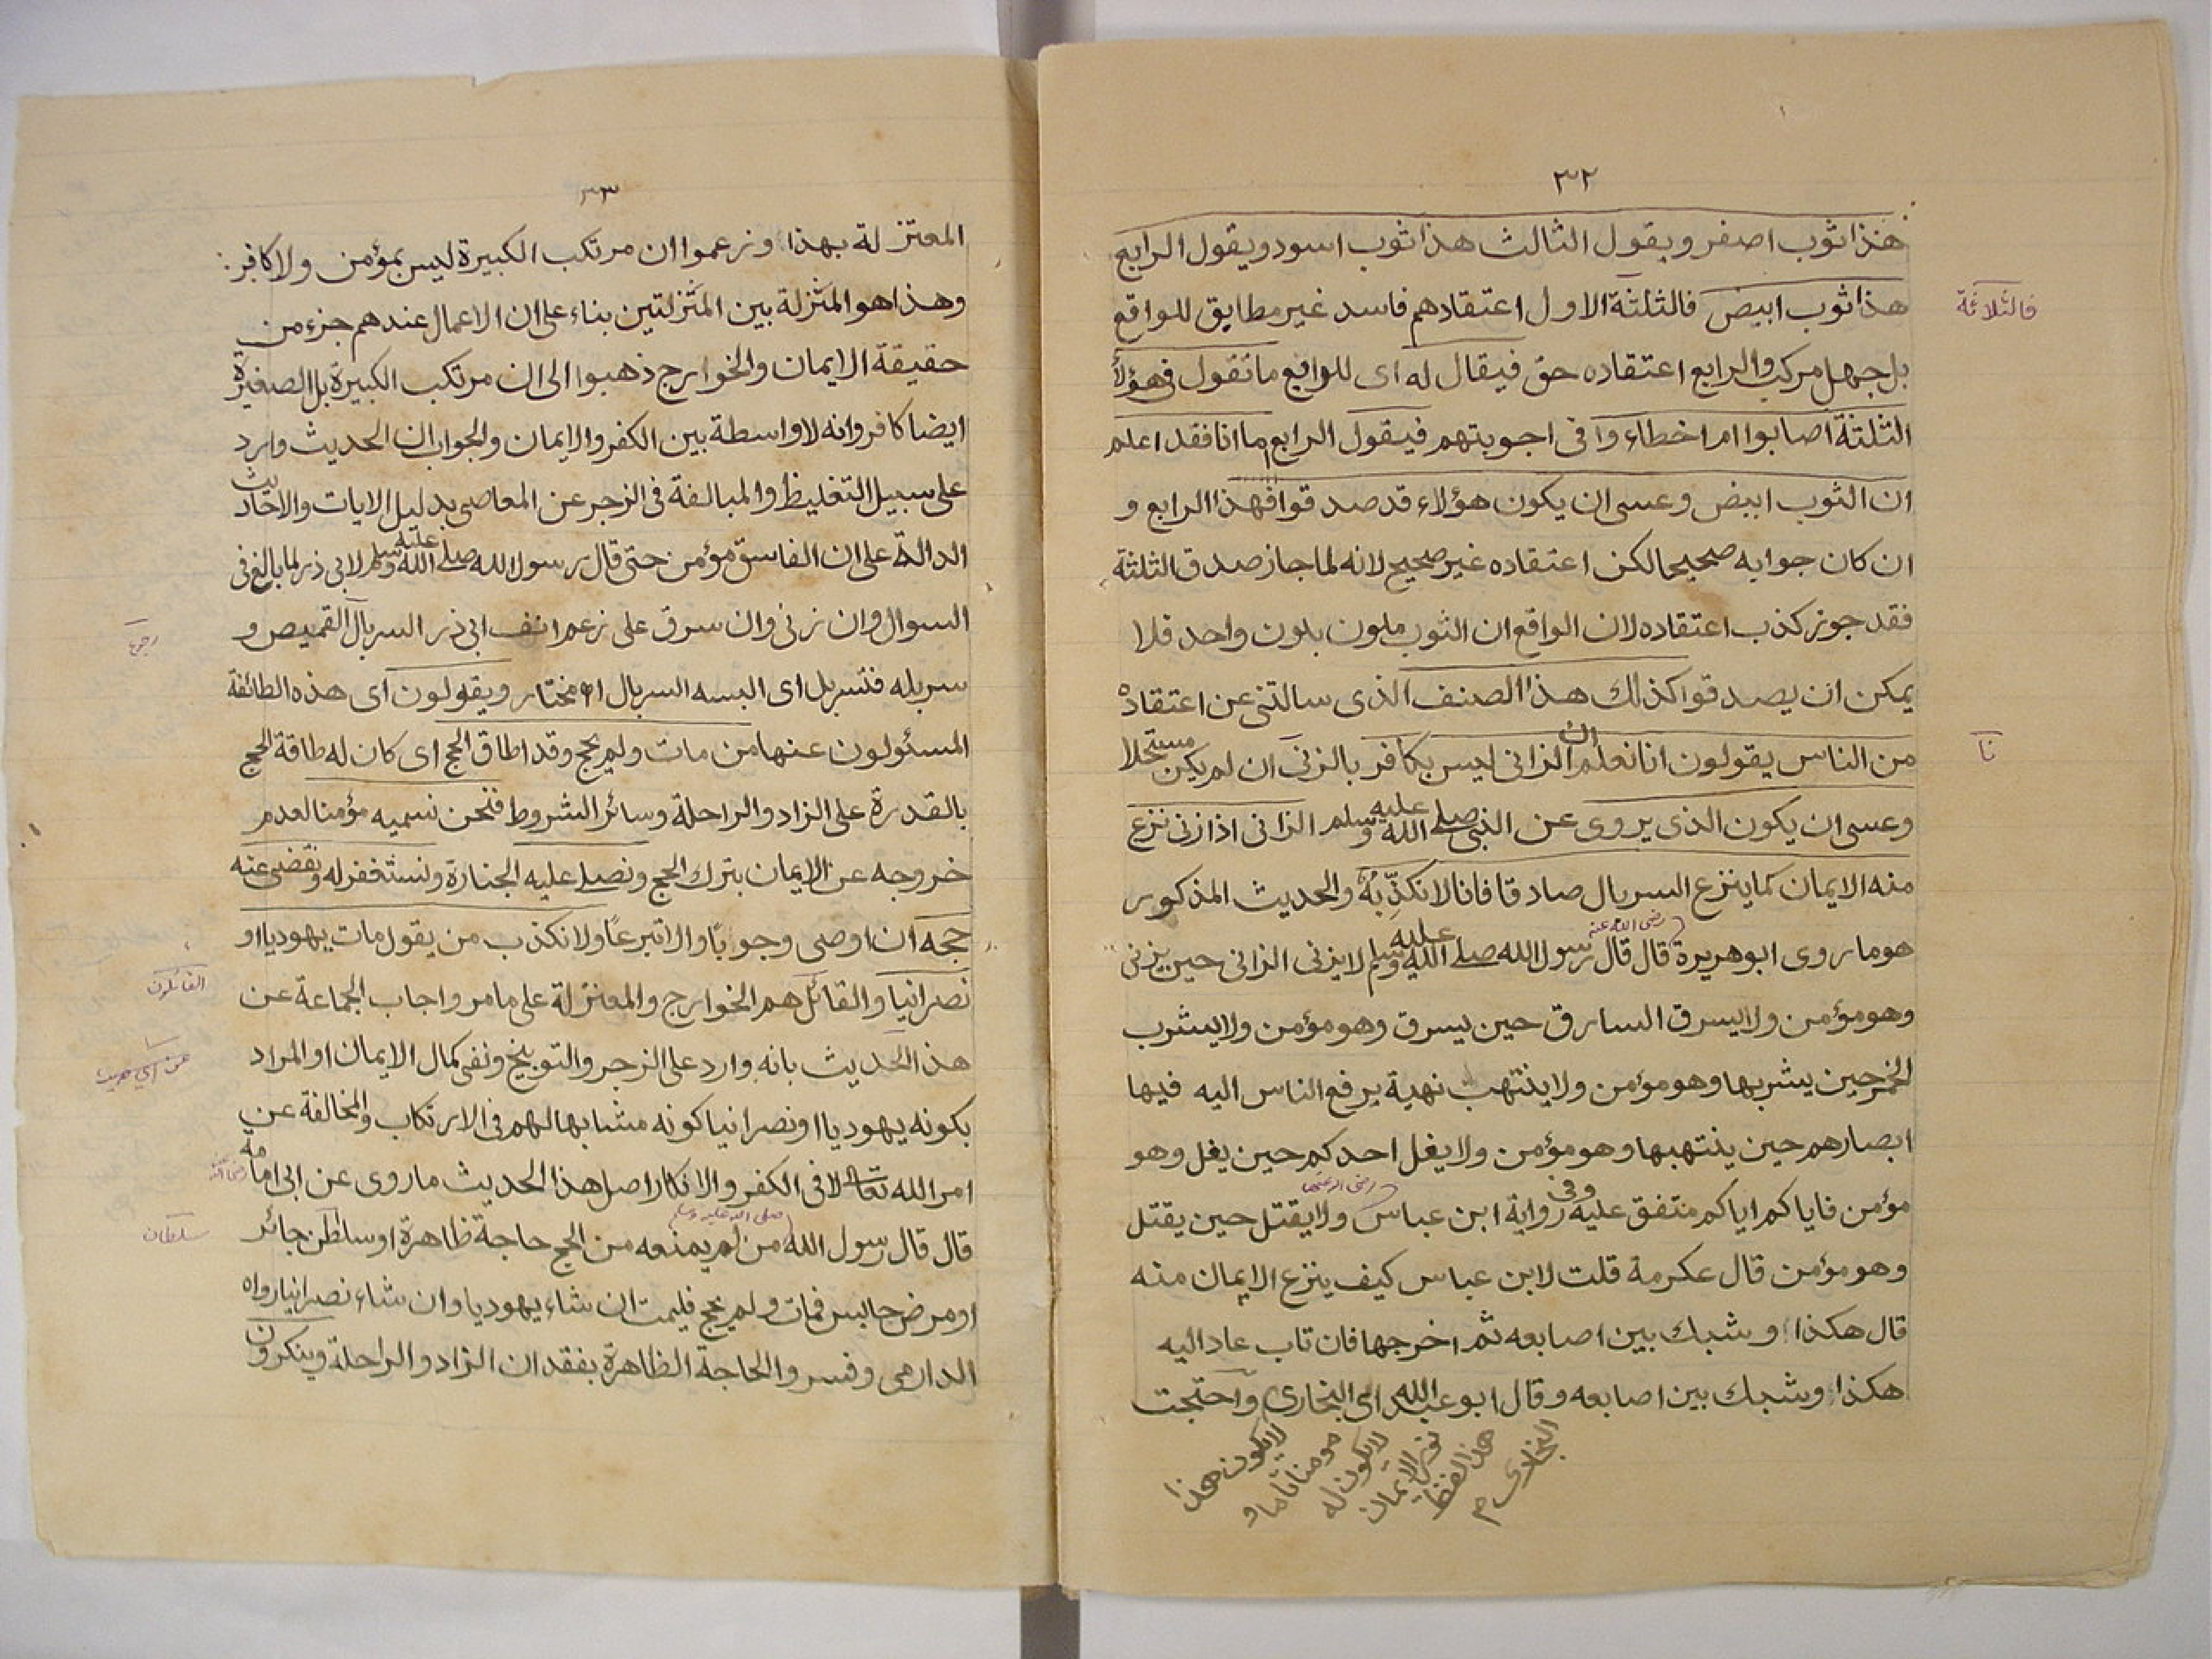 ٣٢
هذا ثوب اصفر ويقول الثالث هذا ثوب اسود ويقول الرابع
هذا ثوب ابيض فالثلثة الاول اعتقادهم فاسد غير مطابق للواقع
فالثلاثة
بل جهل مركب والرابع اعتقاده حق فيقال له اى للواقع ما تقول فى هؤلاء
الثلثة اصابوا ام اخطاء وا فى اجوبتهم فيقول الرابع اما انا فقد اعلم
ان الثوب ابيض وعسى ان يكون هؤلاء قد صدقوا فهذا الرابع و
ان كان جوابه صحيحا لكن اعتقاده غير صحيح لانه لما جاز صدق الثلثة
فقد جوز كذب اعتقاده لان الواقع ان الثوب ملون بلون واحد فلا
يمكن ان يصدقوا كذلك هذا الصنف الذى سالتنى عن اعتقاده
من الناس يقولون انا نعلم ان الزانى ليس بكافر بالزنى ان لم يكن مستحلا
نا
وعسى ان يكون الذى يروى عن النبى صلى الله عليه وسلم الزانى اذا زنى نزع
منه الايمان كما ينزع السربال صادقا فانا لا نكذِّبُهُ والحديث المذكور
هو ما روى ابو هريرة رضى الله عنه قال قال رسول الله صلى الله عليه وسلم لا يزنى الزانى حين يزنى
وهو مؤمن ولا يسرق السارق حين يسرق وهو مؤمن ولا يشرب
الخمر حين يشربها وهو مؤمن ولا ينتهب نهبة يرفع الناس اليه فيها
ابصارهم حين ينتهبها وهو مؤمن ولا يغل احدكم حين يغل وهو
مؤمن فاياكم اياكم متفق عليه وفى رواية ابن عباس رضى الله عنهما ولا يقتل حين يقتل
وهو مؤمن قال عكرمة قلت لابن عباس كيف ينزع الايمان منه
قال هكذا وشبك بين اصابعه ثم اخرجها فان تاب عاد اليه
هكذا وشبك بين اصابعه وقال ابو عبد الله اى البخارى واحتجت
لا يكون هذا
مومنا تاما و
لا يكون له
نور الايمان
هذا لفظ
البخارى م
٣٣
المعتزلة بهذا وزعموا ان مرتكب الكبيرة ليس بمؤمن ولا كافر
وهذا هو المنزلة بين المنزلتين بناء على ان الاعمال عندهم جزء من
حقيقة الايمان والخوارج ذهبوا الى ان مرتكب الكبيرة بل الصغيرة
ايضا كافر وانه لا واسطة بين الكفر والايمان والجواب ان الحديث وارد
على سبيل التغليظ والمبالغة فى الزجر عن المعاصى بدليل الايات والاحاديث
الدالة على ان الفاسق مؤمن حتى قال رسول الله صلى الله عليه وسلم لابى ذر لما بالغ فى
السوال وان زنى وان سرق على زعم انف ابى ذر السربال القميص و
سربله فتسربل اى البسه السربال اه مختار ويقولون اى هذه الطائفة
المسئولون عنها من مات ولم يحج وقد اطاق الحج اى كان له طاقة الحج
بالقدرة على الزاد والراحلة وسائر الشروط فنحن نسميه مؤمنا لعدم
خروجه عن الايمان بترك الحج ونصلى عليه الجنازة ونستغفر له ونقضى عنه
حجه ان اوصى وجوبًا والا تبرعًا ولا نكذب من يقول مات يهوديا او
نصرانيا والقائل هم الخوارج والمعتزلة على ما مر واجاب الجماعة عن
القائلون
هذا الحديث بانه وارد على الزجر والتوبيخ ونفى كمال الايمان او المراد
بكونه يهوديا او نصرانيا كونه مشابها لهم فى الارتكاب والمخالفة عن
امر الله تعالى لا فى الكفر والانكار اصل هذا الحديث ما روى عن ابى امامة رضى الله عنه
قال قال رسول الله صلى الله عليه وسلم من لم يمنعه من الحج حاجة ظاهرة او سلطن جائر
سلطان
او مرض حابس فمات ولم يحج فليمت ان شاء يهوديا وان شاء نصرانيا رواه
الدارمى وفسر والحاجة الظاهرة بفقدان الزاد والراحلة وينكرون